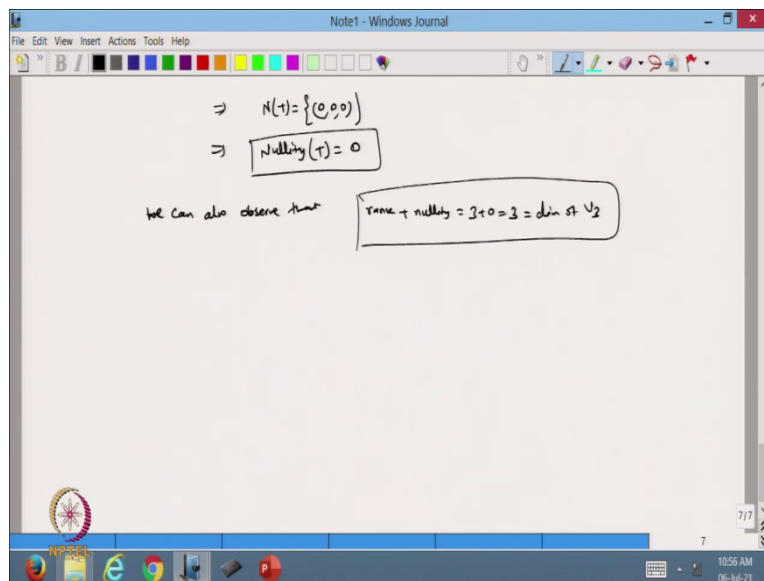 Note1 - Windows Journal
File Edit View Insert Actions Tools Help
B I
⇒ N(T) = {(0,0,0)}
⇒ Nullity(T) = 0
We can also observe that rank + nullity = 3+0 = 3 = dim of V3
NPTEL
7/7
7
10:56 AM
06-Jul-21